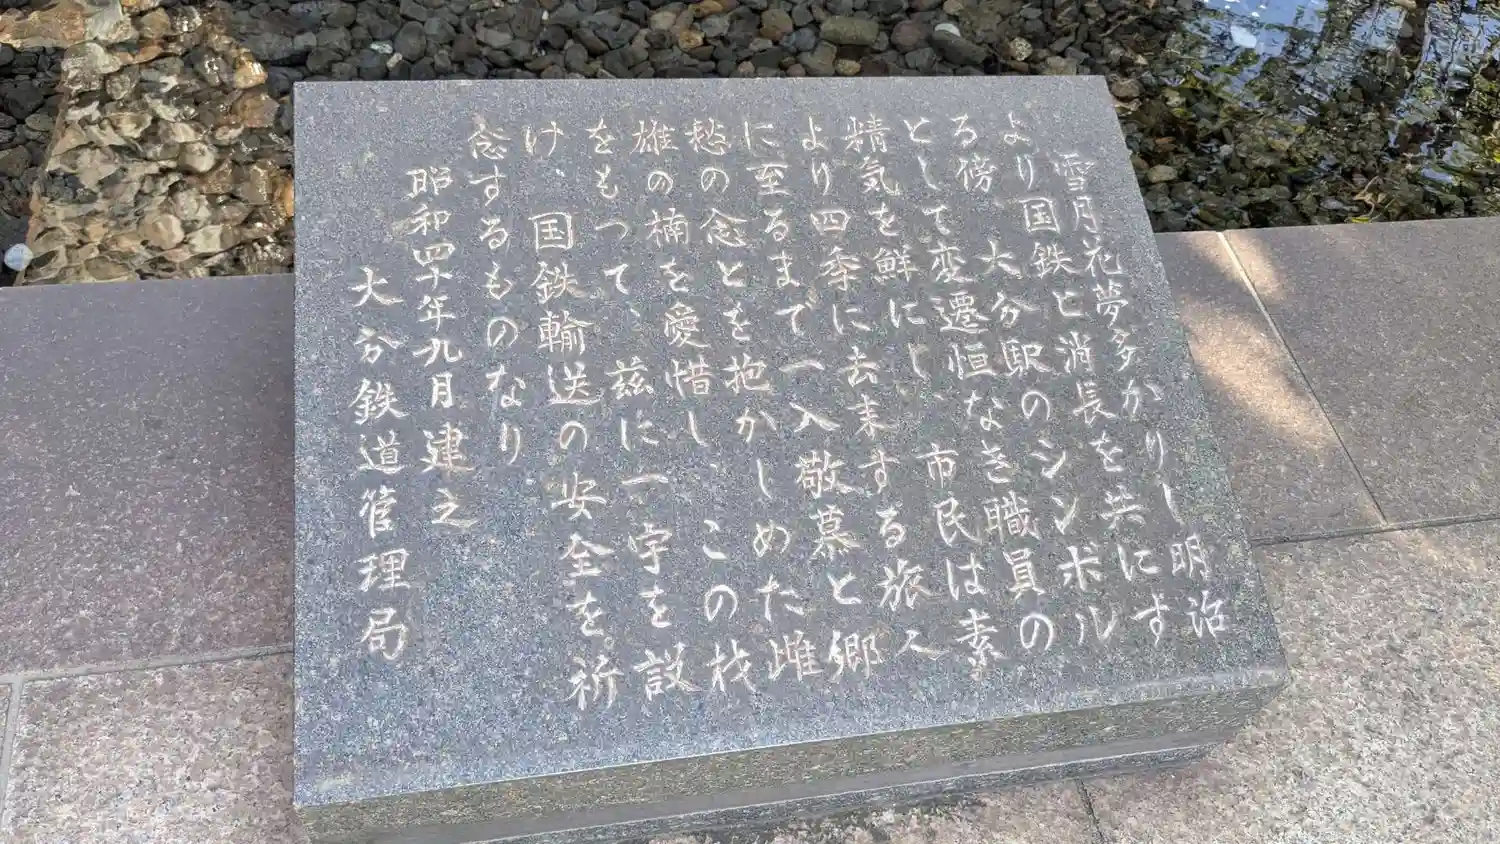 雪月花夢多かりし明治
より国鉄と消長を共にす
る傍、大分駅のシンボル
として変遷恒なき職員の
精気を鮮にし、市民は素
より四季に去来する旅人
に至るまで一入敬慕と郷
愁の念とを抱かしめた雌
雄の楠を愛惜し、この材
をもつて、茲に一宇を設
け、国鉄輸送の安全を。祈
念するものなり
昭和四十年九月建之
大分鉄道管理局